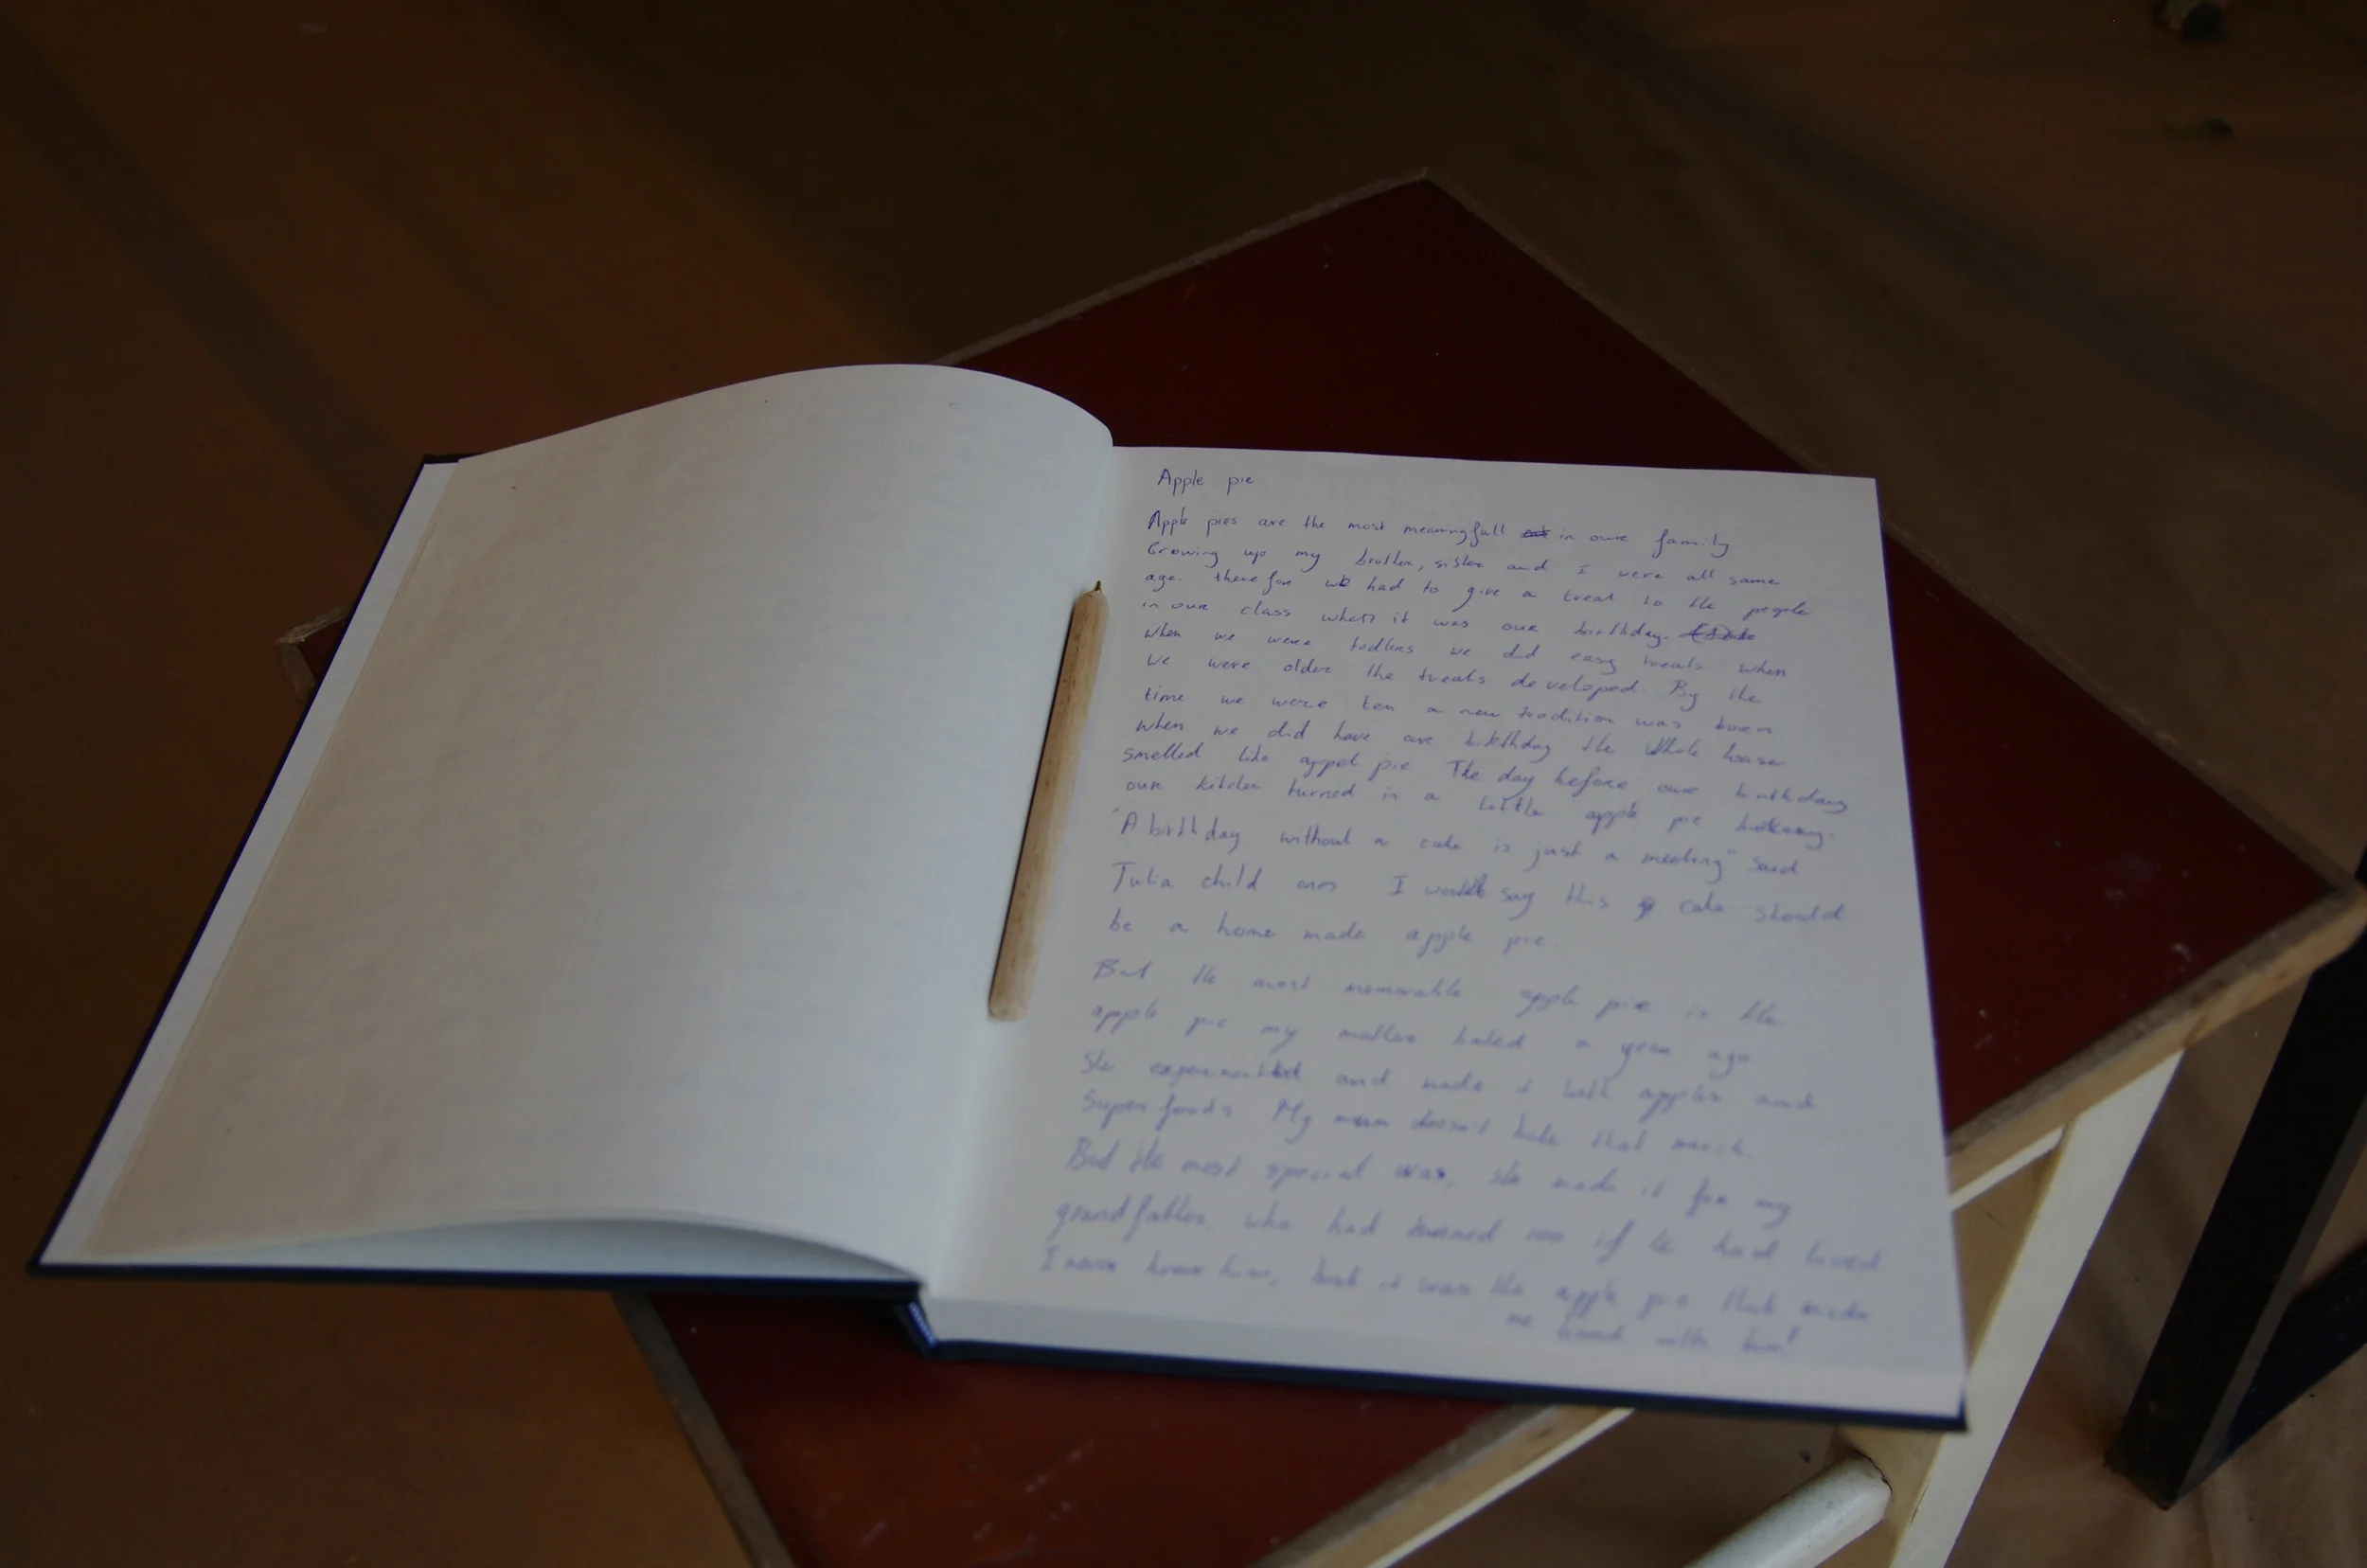 Apple pie
Apple pies are the most meaningfull in our family
Growing up my brother, sister and I were all same
age. therefore we had to give a treat to the people
in our class when it was our birthday.
when we were todlers we did easy treats when
we were older the treats developed. By the
time we were ten a new tradition was born
when we did have our birthday the whole house
smelled like appel pie The day before our birthday
our kitchen turned in a little apple pie
"A birthday without a cake is just a meeting" said
Julia child ones I would say this cake should
be a home made apple pie.
But the most memorable apple pie is the
apple pie my mother baked a year ago
She experimented and made it with apples and
Superfoods My mum doesn't bake that much
But the most special was, she made it for my
grandfather, who had turned 100 if he had lived
I never knew him, but it was the apple pie that made
me with him!